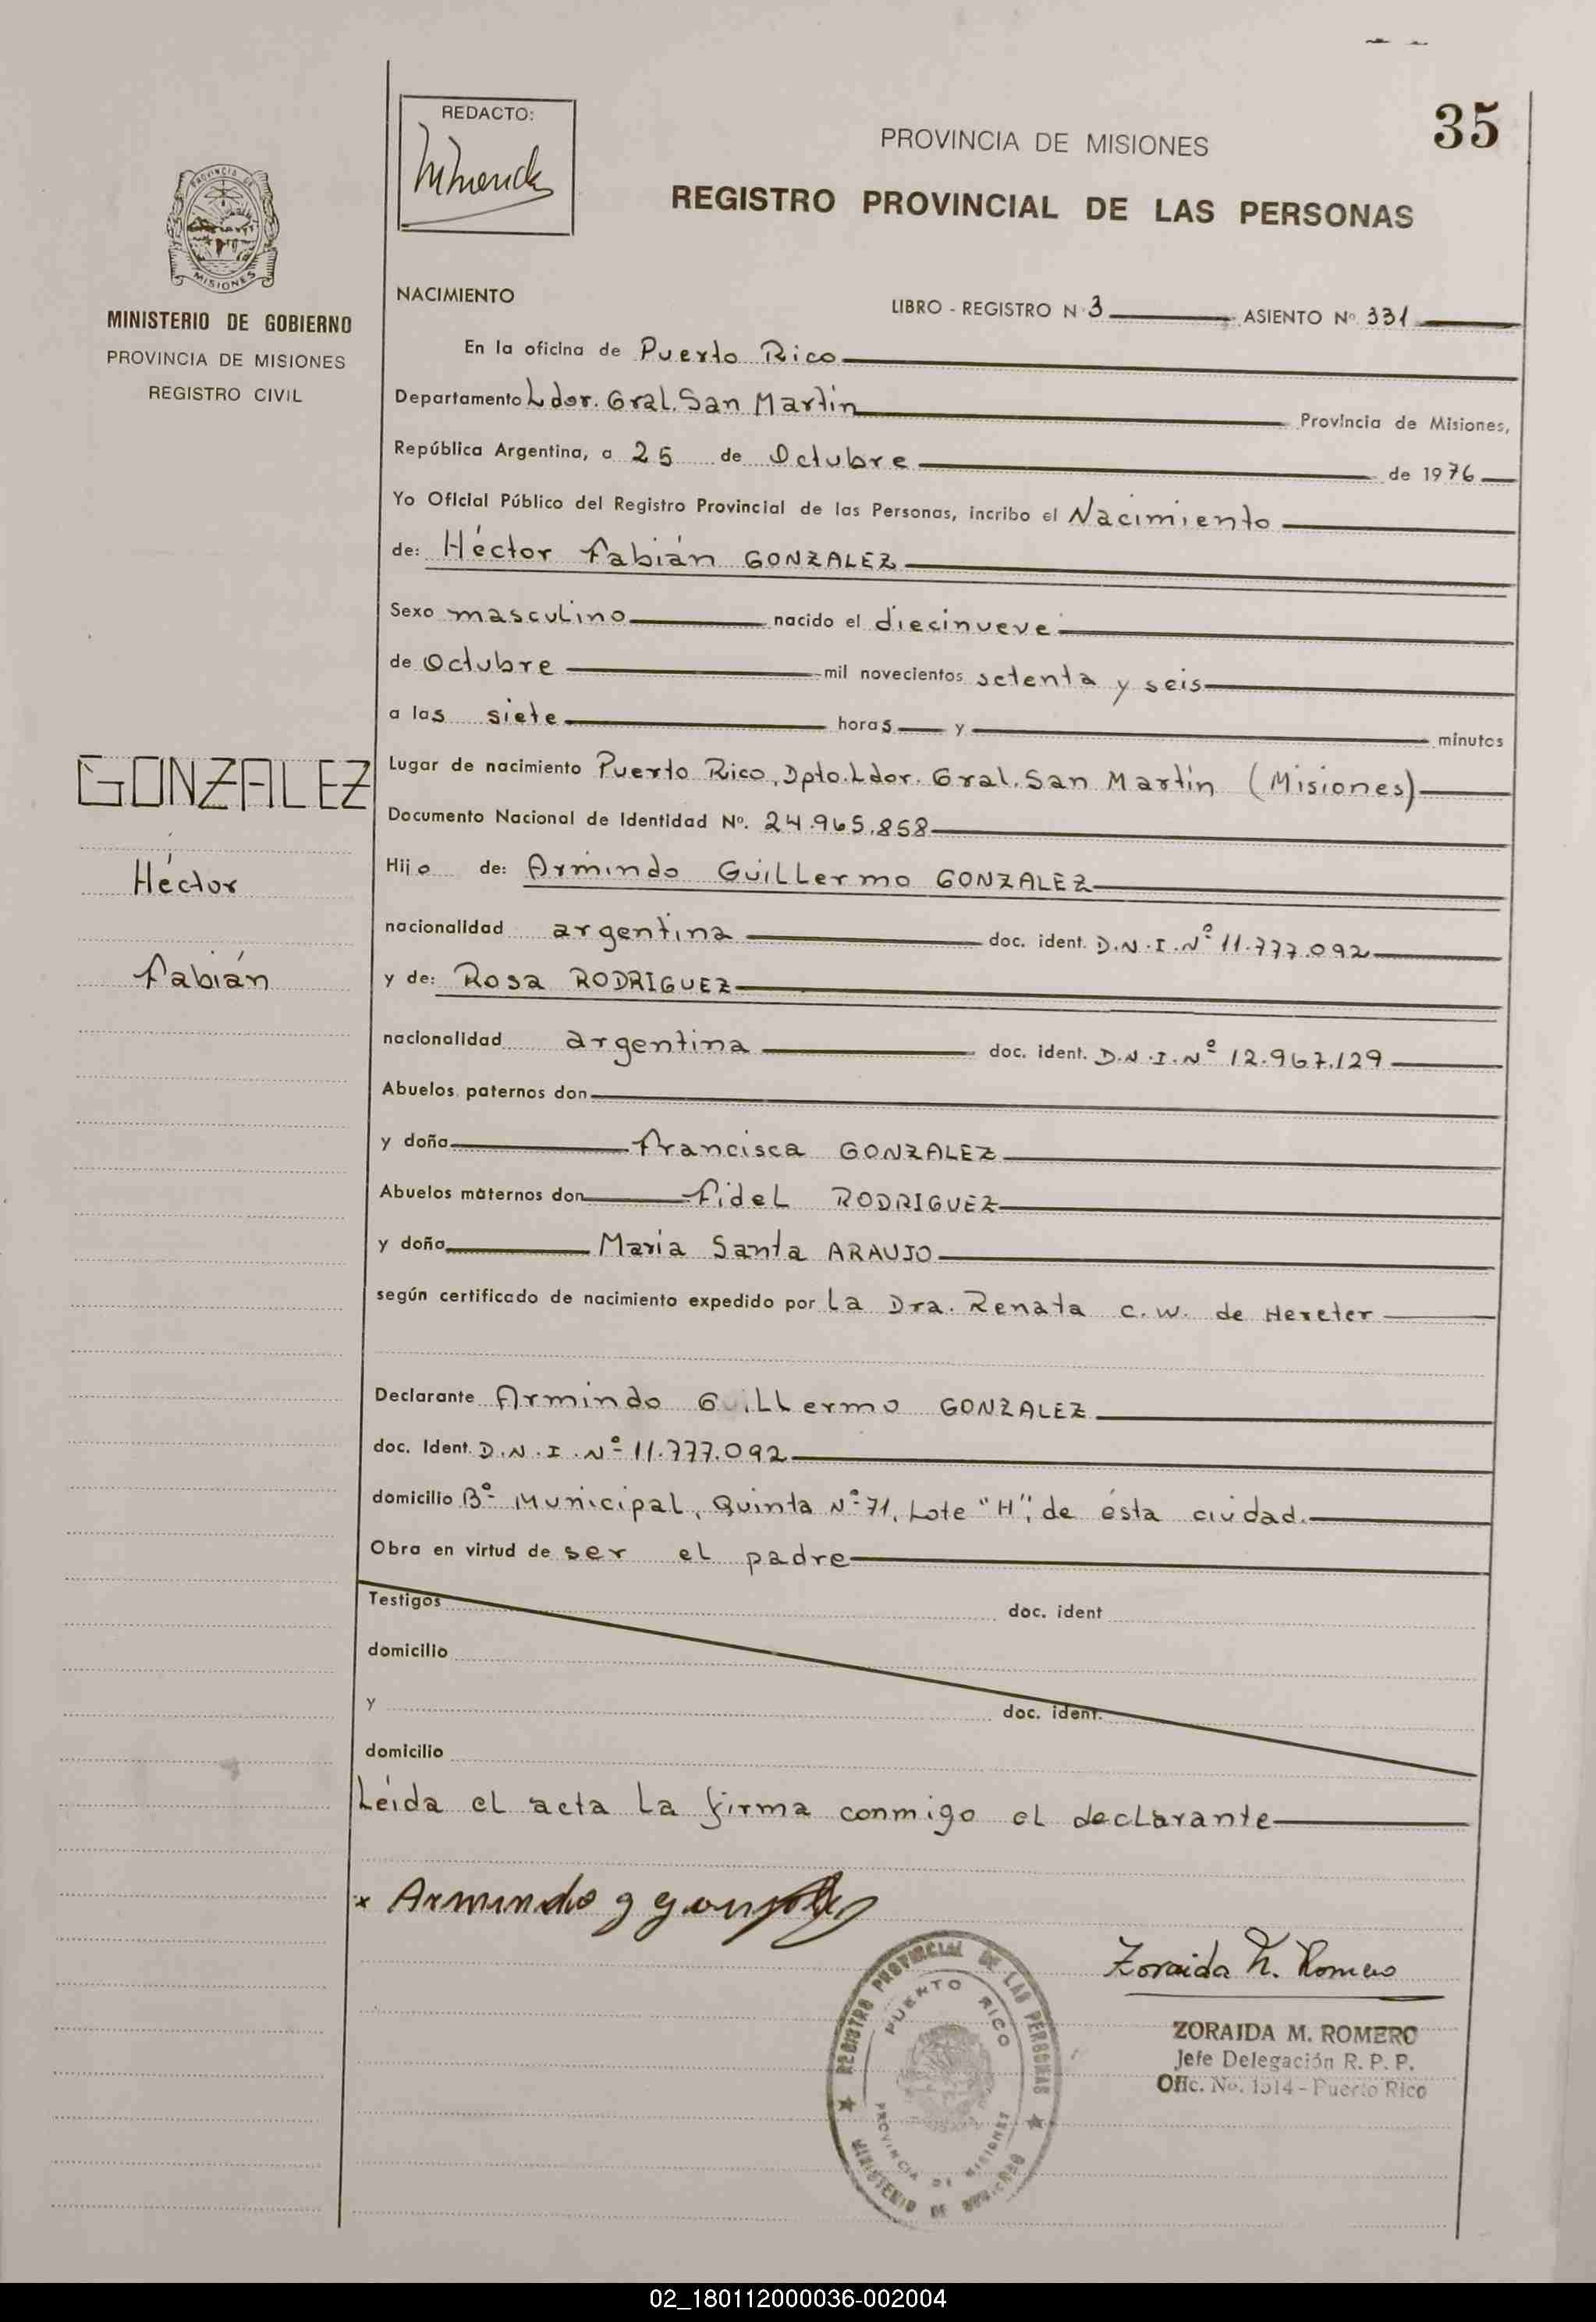 35
REDACTO:
PROVINCIA DE MISIONES
REGISTRO PROVINCIAL DE LAS PERSONAS
PROVINCIA DE
MISIONES
MINISTERIO DE GOBIERNO
PROVINCIA DE MISIONES
REGISTRO CIVIL
NACIMIENTO
LIBRO - REGISTRO N 3 ASIENTO Nº 331
En la oficina de Puerto Rico
Departamento Ldor. Gral. San Martin Provincia de Misiones,
República Argentina, a 25 de Octubre de 1976
Yo Oficial Público del Registro Provincial de las Personas, incribo el Nacimiento
de: Héctor Fabián GONZALEZ
Sexo masculino nacido el diecinueve
de Octubre mil novecientos setenta y seis
a las siete horas y minutos
GONZALEZ
Héctor
Fabián
Lugar de nacimiento Puerto Rico, Dpto. Ldor. Gral. San Martín (Misiones)
Documento Nacional de Identidad Nº. 24.965.858
Hijo de: Armindo Guillermo GONZALEZ
nacionalidad argentina doc. ident. D.N.I.Nº 11.777.092
y de: Rosa RODRIGUEZ
nacionalidad argentina doc. ident. D.N.I.Nº 12.967.129
Abuelos paternos don
y doña Francisca GONZALEZ
Abuelos maternos don Fidel RODRIGUEZ
y doña Maria Santa ARAUJO
según certificado de nacimiento expedido por La Dra. Renata C. W. de Hereter
Declarante Armindo Guillermo GONZALEZ
doc. Ident. D.N.I.Nº 11.777.092
domicilio Bº Municipal, Quinta Nº 71, Lote "H", de ésta ciudad.
Obra en virtud de ser el padre
Testigos doc. ident
domicilio
y doc. ident.
domicilio
Leída el acta la firma conmigo el declarante
x Armindo g gonzalez
Zoraida M. Romero
ZORAIDA M. ROMERO
Jefe Delegación R. P. P.
Ofic. No. 1514 - Puerto Rico
REGISTRO PROVINCIAL DE LAS PERSONAS
PUERTO RICO
PROVINCIA DE MISIONES
MINISTERIO DE GOBIERNO
02_180112000036-002004